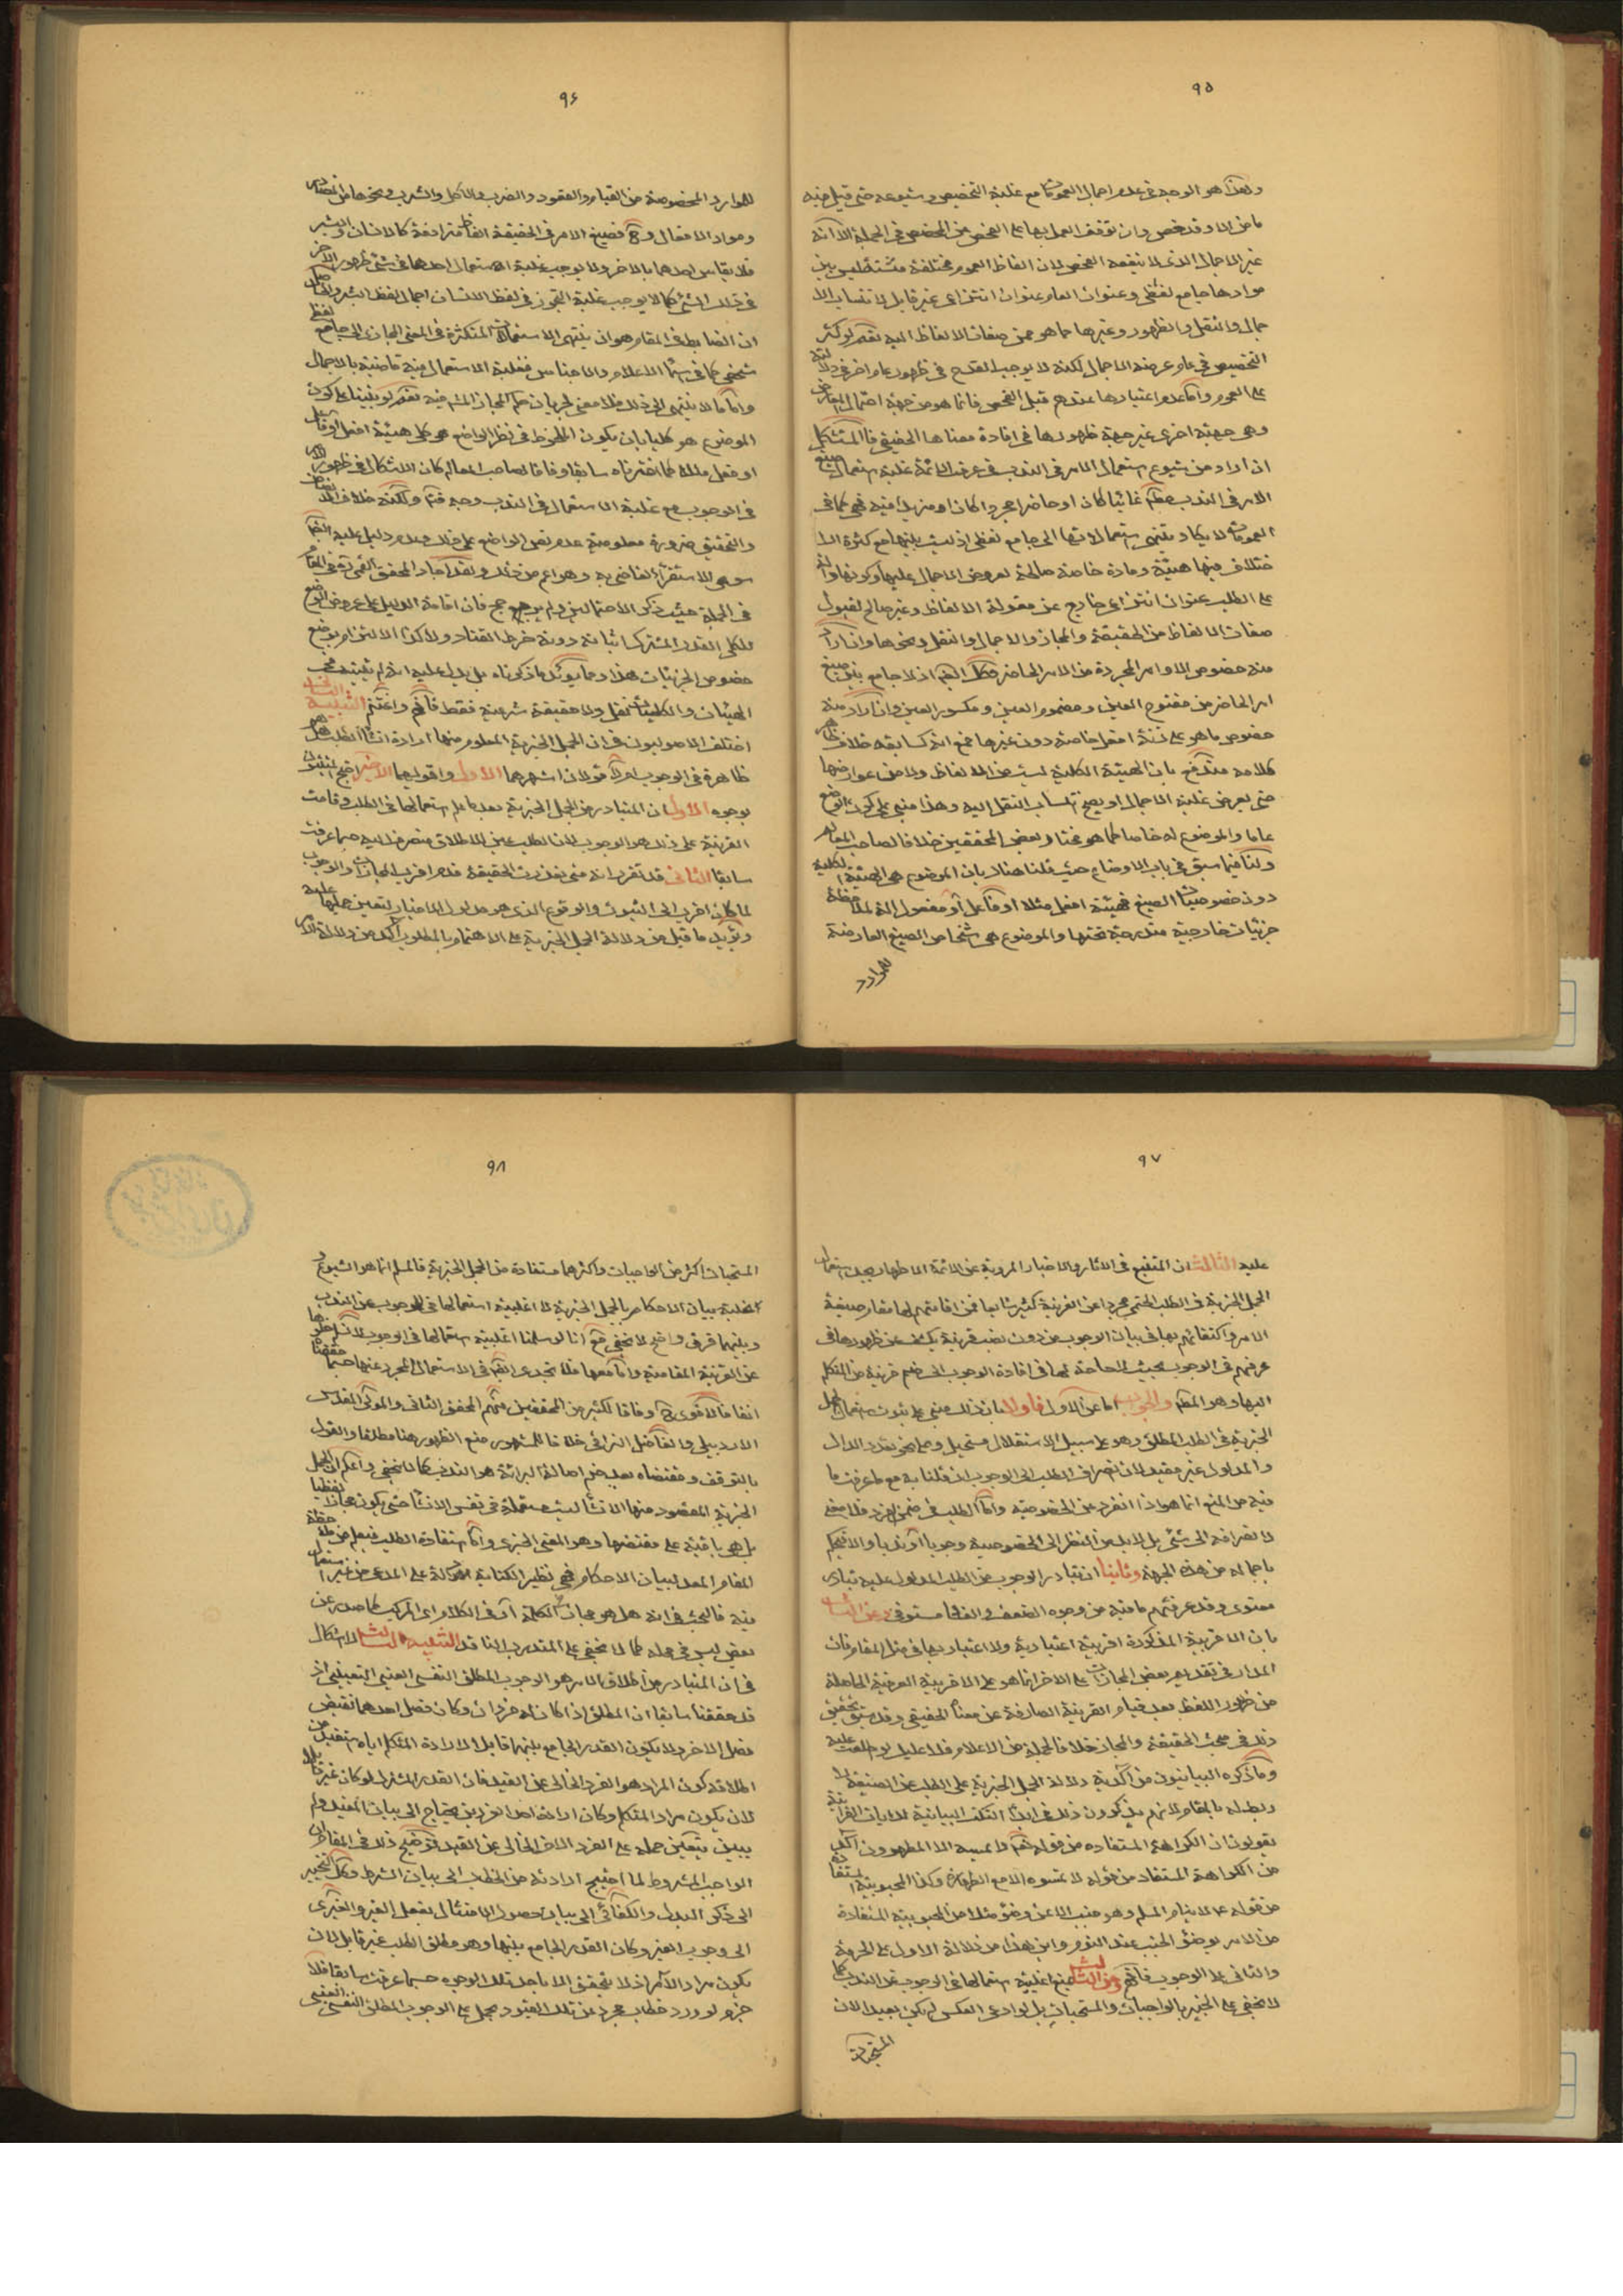 ٩٥
وهذا هو الوجه فى عدم اجمال العمومات مع غلبة التخصيص وشيوعه حتى قيل فيه
ما من عام الا وقد خص وان توقف العمل بها على الفحص عن المخصص فى الجملة الا انه
غير الاجمال الذى لا ينفعه الفحص لان الفاظ العموم مختلفة متشتة ليس بين
موادها جامع لفظى وعنوان العام عنوان انتزاعى غير قابل لانتساب الا
جمال والنقل والظهور وغيرها مما هو من صفات الالفاظ اليه نعم لو كثر
التخصيص فى عام عرضه الاجمال لكنه لا يوجب القدح فى ظهور عام اخر فى دلالته
على العموم واما عدم اعتبارها عندهم قبل الفحص فانما هو من جهة احتمال المعارض
وهى جهة اخرى غير جهة ظهورها فى افادة معناها الحقيقى فالمستشكل
ان اراد من شيوع استعمال الامر فى الندب فى عرف الائمة غلبة استعمال صيغ
الامر فى الندب مطلقا غائبا كان او حاضرا مجردا كان او مزيدا فيه فهى كما فى
العمومات لا يكاد ينتهى استعمالاتها الى جامع لفظى اذ ليس بينها مع كثرة الا
ختلاف فيها هيئة ومادة خاصة صالحة لعروض الاجمال عليها وكونها دالة
على الطلب عنوان انتزاعى خارج عن مقولة الالفاظ وغير صالح لقبول
صفات الالفاظ من الحقيقة والمجاز والاجمال والنقل ونحوها وان اراد
منه خصوص الاوامر المجردة من الامر الحاضر فكك ايضا اذ لا جامع بين صيغ
امر الحاضر من مفتوح العين ومضموم العين ومكسور العين وان اراد منه
خصوص ما هو على زنة افعل خاصة دون غيرها فمع انه كسابقه خلاف ظاهر
كلامه مندفع بان الهيئة الكلية ليست من الالفاظ ولا من عوارضها
حتى يعرض غلبة الاجمال او يصح انتساب النقل اليه وهذا مبنى على كون الوضع
عاما والموضوع له خاصا كما هو مختارنا وبعض المحققين خلافا لصاحب المعالم
ولنا فيما سبق فى باب الاوضاع حيث قلنا هناك بان الموضوع هى الهيئة الكلية
دون خصوصيات الصيغ فهيئة افعل مثلا او فاعل او مفعول الة لملاحظة
جزئيات خارجية مندرجة تحتها والموضوع هى اشخاص الصيغ العارضة
للموارد
٩٦
للموارد المخصوصة من القيام والقعود والضرب والاكل والشرب ونحوها من المصادر
ومواد الافعال وح فصيغ الامر فى الحقيقة الفاظ مترادفة كالانسان والبشر
فلا يقاس احدهما بالاخر ولا يوجب غلبة استعمال احدهما فى شئ ظهور الاخر
فى ذلك الشئ كما لا يوجب غلبة التجوز فى لفظ الانسان اجمال لفظ البشر والحاصل
ان الضابط فى المقام هو ان ينتهى الاستعمالات المتكثرة فى المعنى المجازى الى جامع لفظى
شخصى كما فى اسماء الاعلام والاجناس فغلبة الاستعمال فيه قاضية بالاجمال
واما ما لا ينتهى الى ذلك فلا معنى لجريان حكم المجاز المشهور فيه نعم لو بنينا على كون
الموضوع هو كليا بان يكون الملحوظ فى نظر الواضع هو كلى هيئة افعل او فاعل
او فعل مثلا كما اخترناه سابقا وفاقا لصاحب المعالم كان الاشكال فى ظهور الامر
فى الوجوب مع غلبة الاستعمال فى الندب وجه قوى ولكنه خلاف الانصاف
والتحقيق ضرورة معلومية عدم نص الواضع على ذلك وعدم دليل عليه ايضا
سوى الاستقراء القاضى به وهو اعم من ذلك ولقد اجاد المحقق القمى ره فى المقام
فى الجملة حيث ذكر الاحتمالين ولم يرجح فان اقامة الدليل على عروض الوضع
للكلى القدر المشترك اثباته دونه خرط القتاد ولا كذا الالتزام بوضع
خصوص الجزئيات هذا ومما يؤيد ما ذكرناه بل يدل عليه انه لم يثبت فى
الهيئات والكليات نقل ولا حقيقة شرعية فقط فافهم واغتنم التنبيه الثانى
اختلف الاصوليون فى ان الجمل الخبرية المعلوم منها ارادة انشاء الطلب هل هى
ظاهرة فى الوجوب ام لا قولان اشهرهما الاول واقواهما الاخير احتج المثبتون
بوجوه الاول ان المتبادر من الجمل الخبرية بعد ما علم استعمالها فى الطلب وقامت
القرينة على ذلك هو الوجوب لان الطلب عند الاطلاق منصرف اليه كما عرفت
سابقا الثانى قد تقرر انه متى تعذرت الحقيقة قدم اقرب المجازات والوجوب
لما كان اقرب الى الثبوت والوقوع الذى هو مدلول الاخبار لتعين حملها عليه
ويؤيد ما قيل من دلالة الجمل الخبرية على الاهتمام بالمطلوب اكد من دلالة الامر
٩٧
عليه الثالث ان المتتبع فى الاثار والاخبار المروية عن الائمة الاطهار يجد استعمال
الجمل الخبرية فى الطلب الحتمى مجردا عن القرينة كثيرا شايعا فمن اقامتهم لها مقام صيغة
الامر واكتفائهم بها فى بيان الوجوب من دون نصب قرينة يكشف عن ظهورها فى
عرفهم فى الوجوب بحيث لا حاجة لها فى افادة الوجوب الى ضم قرينة من المتكلم
اليها وهو المطلوب والجواب اما عن الاول فاولا بان ذلك مبنى على ثبوت استعمال الجمل
الخبرية فى الطلب المطلق وهو على سبيل الاستقلال مستحيل وعلى نحو تعدد الدال
والمدلول غير مفيد لان انصراف الطلب الى الوجوب ان قلنا به مع ما عرفت ما
فيه من المنع انما هو اذا انفرد عن الخصوصية واما الطلب فى ضمن الفرد فلا معنى
لانصرافه الى شئ بل لابد من النظر الى الخصوصية وجوبا او ندبا والا فيحكم
باجماله من هذه الجهة وثانيا ان تبادر الوجوب من الطلب المدلول عليه تبادر
معنوى وقد عرفت ما فيه من وجوه الضعف والفساد مستوفى وعن الثانى
بان الاقربية المذكورة اقربية اعتبارية ولا اعتبار بها فى مثل المقام فان
المدار فى تقديم بعض المجازات على الاخر انما هو على الاقربية العرفية الحاصلة
من ظهور اللفظ بعد قيام القرينة الصارفة عن معناه الحقيقى وقد سبق تحقيق
ذلك فى مبحث الحقيقة والمجاز خلافا لجملة من الاعلام فلا عليك لو طلعت عليه
وما ذكره البيانيون من اكدية دلالة الجمل الخبرية على الطلب من الصيغة لا
ربط له بالمقام لانهم يذكرون ذلك فى ابداء النكت البيانية للايات القرانية
يقولون ان الكراهة المستفادة من قوله تعالى لا يمسه الا المطهرون اكد
من الكراهة المستفاد من قوله لا تمسوه الا مع الطهارة وكذا المحبوبية المستفادة
من قوله ع لا ينام المسلم وهو جنب الا عن وضوء مثلا من المحبوبية المستفادة
من الامر بوضوء الجنب عند النوم واين هذا من دلالة الاول على الحرمة
والثانى على الوجوب فافهم وعن الثالث بمنع اغلبية استعمالها فى الوجوب عن الندب كما
لا يخفى على الخبير بالواجبات والمستحبات بل لو ادعى العكس لم يكن بعيدا لان
المستحبات
٩٨
المستحبات اكثر من الواجبات واكثرهما مستفادة من الجمل الخبرية فالمسلم انما هو الشيوع و
الغلبة ببيان الاحكام بالجمل الخبرية لا اغلبية استعمالها فى الوجوب عن الندب
وبينهما فرق واضح لا يخفى مع انا لو سلمنا اغلبية استعمالها فى الوجوب لا نسلم خلوها
عن القرينة المقامية واما معها فلا تجدى ايضا فى الاستعمال المجرد عنها حسبما حققنا
انفا فالاقوى ح وفاقا لكثير من المحققين منهم المحقق الثانى والمولى المقدس
الاردبيلى والفاضل النراقى خلافا للمشهور منع الظهور هنا مطلقا والقول
بالتوقف ومقتضاه بعد ضم اصالة البرائة هو الندب كما لا يخفى واعلم ان الجمل
الخبرية المقصود منها الانشاء ليست مستعملة فى نفس الانشاء حتى يكون مجازا لفظيا
بل هى باقية على مقتضيها وهو المعنى الخبرى واما استفادة الطلب فيعلم من ملاحظة
المقام المعد لبيان الاحكام فهى نظير الكناية الدالة على المدعى من غير استعمال
فيه فالبحث فى انه هل هو مجاز فى الكلمة او فى الكلام اى المركب كما صدر عن
بعض ليس فى محله كما لا يخفى على المتدرب الناقد التنبيه الثالث لا اشكال
فى ان المتبادر من اطلاق الامر هو الوجوب المطلق النفسى العينى التعيينى اذ
قد حققنا سابقا ان المطلق اذا كان له فردان وكان فصل احدهما نقيض
فصل الاخر ولا يكون القدر الجامع بينهما قابلا لارادة المتكلم اياه استقبل من
اطلاقه كون المراد هو الفرد الخالى عن القيد فان القدر المشترك لو كان غير قابل
لان يكون مراد المتكلم وكان ارادة احد الفردين يحتاج الى بيان القيد ولم
يبين يتعين حمله على الفرد الاخر الخالى عن القيد توضيح ذلك فى المقام ان
الواجب المشروط لما احتيج ارادته من الخطاب الى بيان الشرط وكك التخيير
الى ذكر البدل والكفائى الى بيان حصول الامتثال بفعل الغير والغيرى
الى وجوب الغير وكان القدر الجامع بينها وهو مطلق الطلب غير قابل لان
يكون مراد الامر اذ لا يتحقق الا باحد تلك الوجوه حسبما عرفت سابقا فلا
جرم لو ورد خطاب مجرد عن تلك القيود يحمل على الوجوب المطلق النفسى العينى